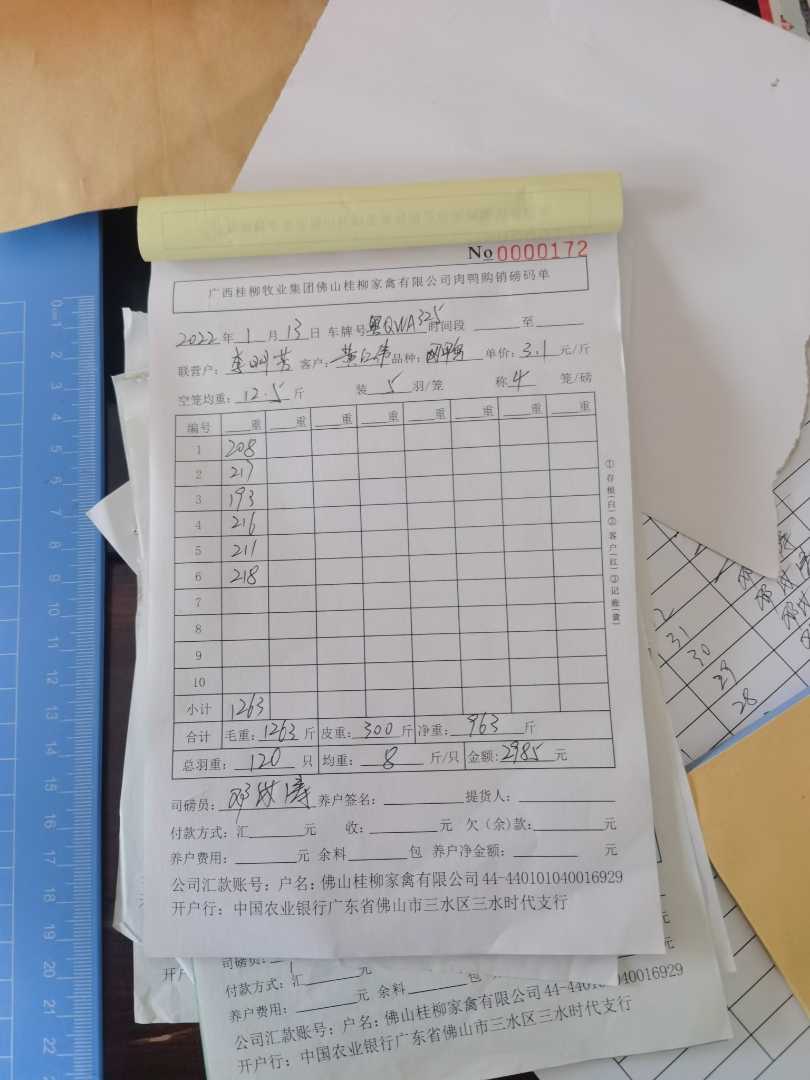 No 0000172
广西桂柳牧业集团佛山桂柳家禽有限公司肉鸭购销磅码单
2022年1月13日 车牌号粤QWA325时间段 至
联营户: 客户: 黄 伟 品种: 单价: 3.1 元/斤
空笼均重: 12.5 斤 装 5 羽/笼 称 4 笼/磅
编号 重 重 重 重 重 重 重 重
1 208
2 217
3 193
4 216
5 211
6 218
7
8
9
10
小计 1263
合计 毛重: 1263 斤 皮重: 300 斤 净重: 963 斤
总羽重: 120 只 均重: 8 斤/只 金额: 2985 元
司磅员: 养户签名: 提货人:
付款方式: 汇 元 收: 元 欠(余)款: 元
养户费用: 元 余料 包 养户净金额: 元
公司汇款账号: 户名: 佛山桂柳家禽有限公司 44-440101040016929
开户行: 中国农业银行广东省佛山市三水区三水时代支行
①存根(白)②客户(红)③记账(黄)
司磅员:
付款方式: 汇 元
养户费用: 元 余料 包
公司汇款账号: 户名: 佛山桂柳家禽有限公司 44-440101040016929
开户行: 中国农业银行广东省佛山市三水区三水时代支行
开户
元
元
31
30
29
28
0 1
2
3
4
5
6
7
8
9
10
11
12
13
14
15
16
17
18
19
20
21
22